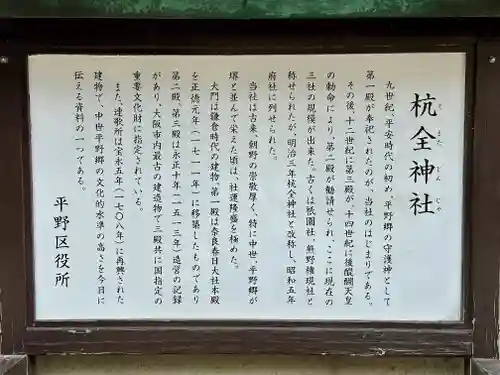 杭全神社
く また じん じゃ
九世紀、平安時代の初め、平野郷の守護神として
第一殿が奉祀されたのが、当社のはじまりである。
その後、十二世紀に第三殿が、十四世紀に後醍醐天皇
の勅命により、第二殿が勧請せられ、ここに現在の
三社の規模が出来た。古くは祇園社、熊野権現社と
称せられたが、明治三年杭全神社と改称し、昭和五年
府社に列せられた。
当社は古来、朝野の崇敬厚く、特に中世、平野郷が
堺と並んで栄えた頃は、社運隆盛を極めた。
大門は鎌倉時代の建物、第一殿は奈良春日大社本殿
を正徳元年（一七一一年）に移築したものであり
第二殿、第三殿は永正十年（一五一三年）造営の記録
があり、大阪市内最古の建造物で三殿共に国指定の
重要文化財に指定されている。
また、連歌所は宝永五年（一七〇八年）に再興された
建物で、中世平野郷の文化的水準の高さを今日に
伝える資料の一つである。
平野区役所